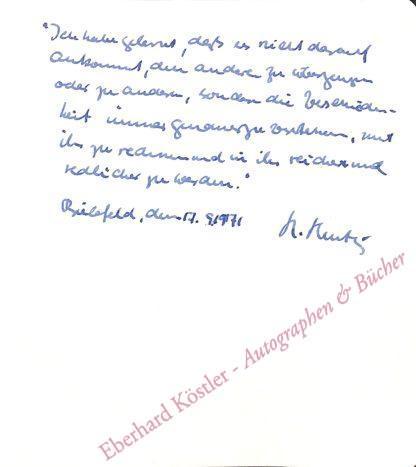 "Ich habe gelernt, daß es nicht darauf
ankommt, den anderen zu überzeugen
oder zu ändern, sondern die Verschieden-
heit immer genauer zu verstehen, mit
ihr zu rechnen und in ihr reicher und
redlicher zu werden."
Bielefeld, den 17. 9. 1971
H.
Eberhard Köstler - Autographen & Bücher